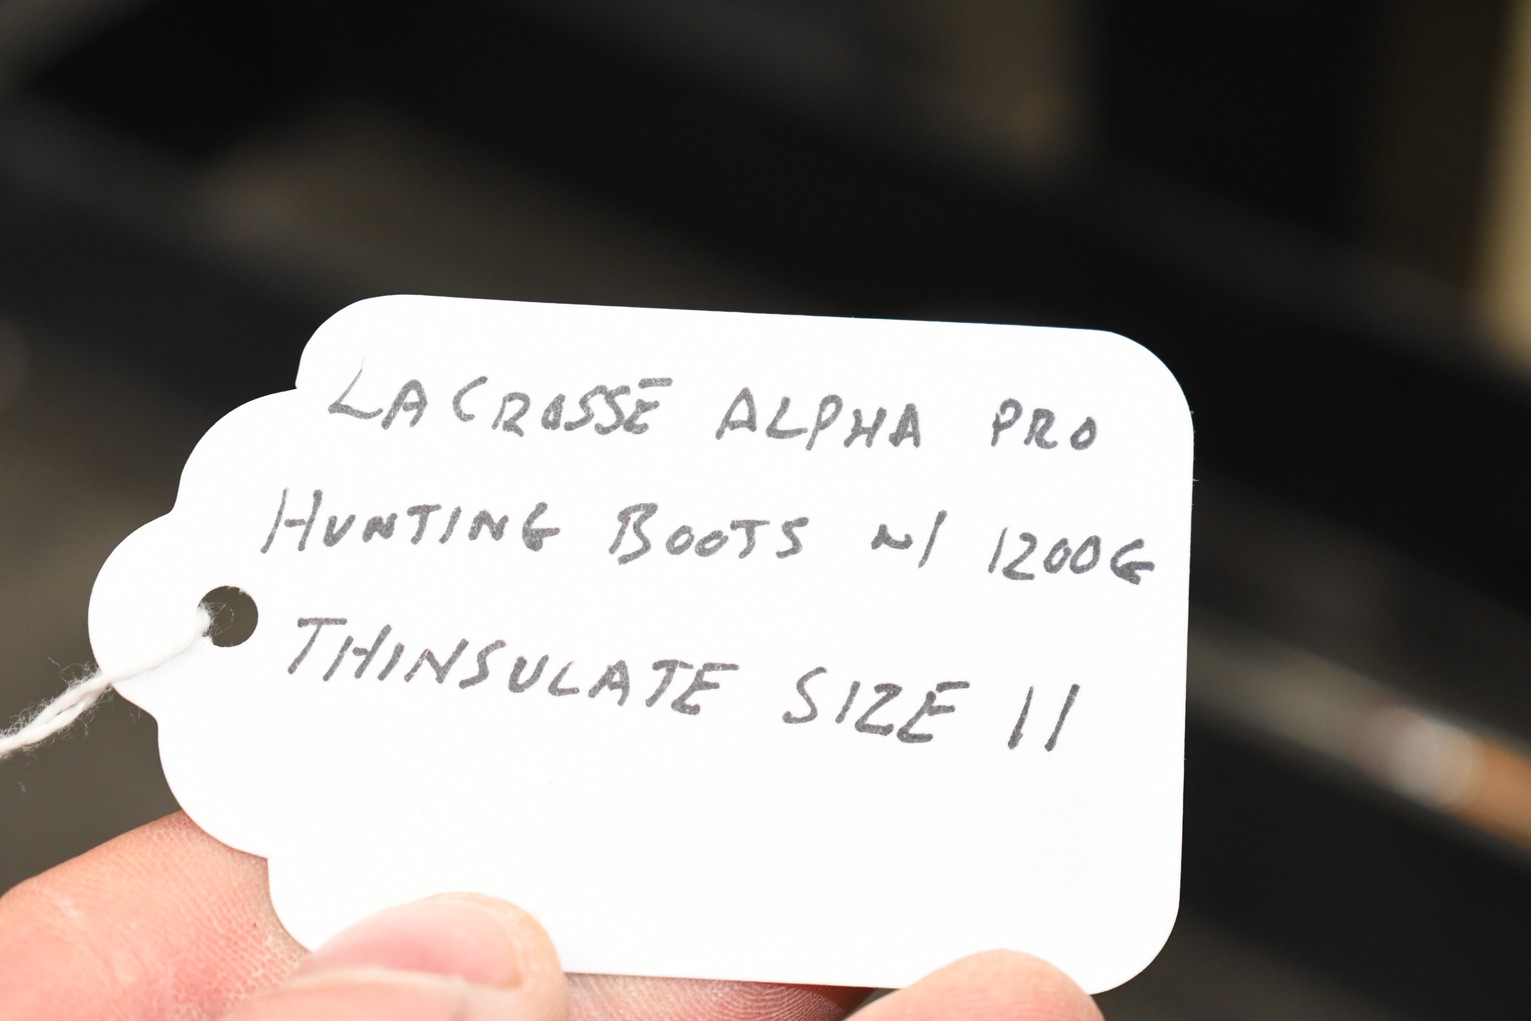 LACROSSE ALPHA PRO
HUNTING BOOTS W/ 1200G
THINSULATE SIZE 11